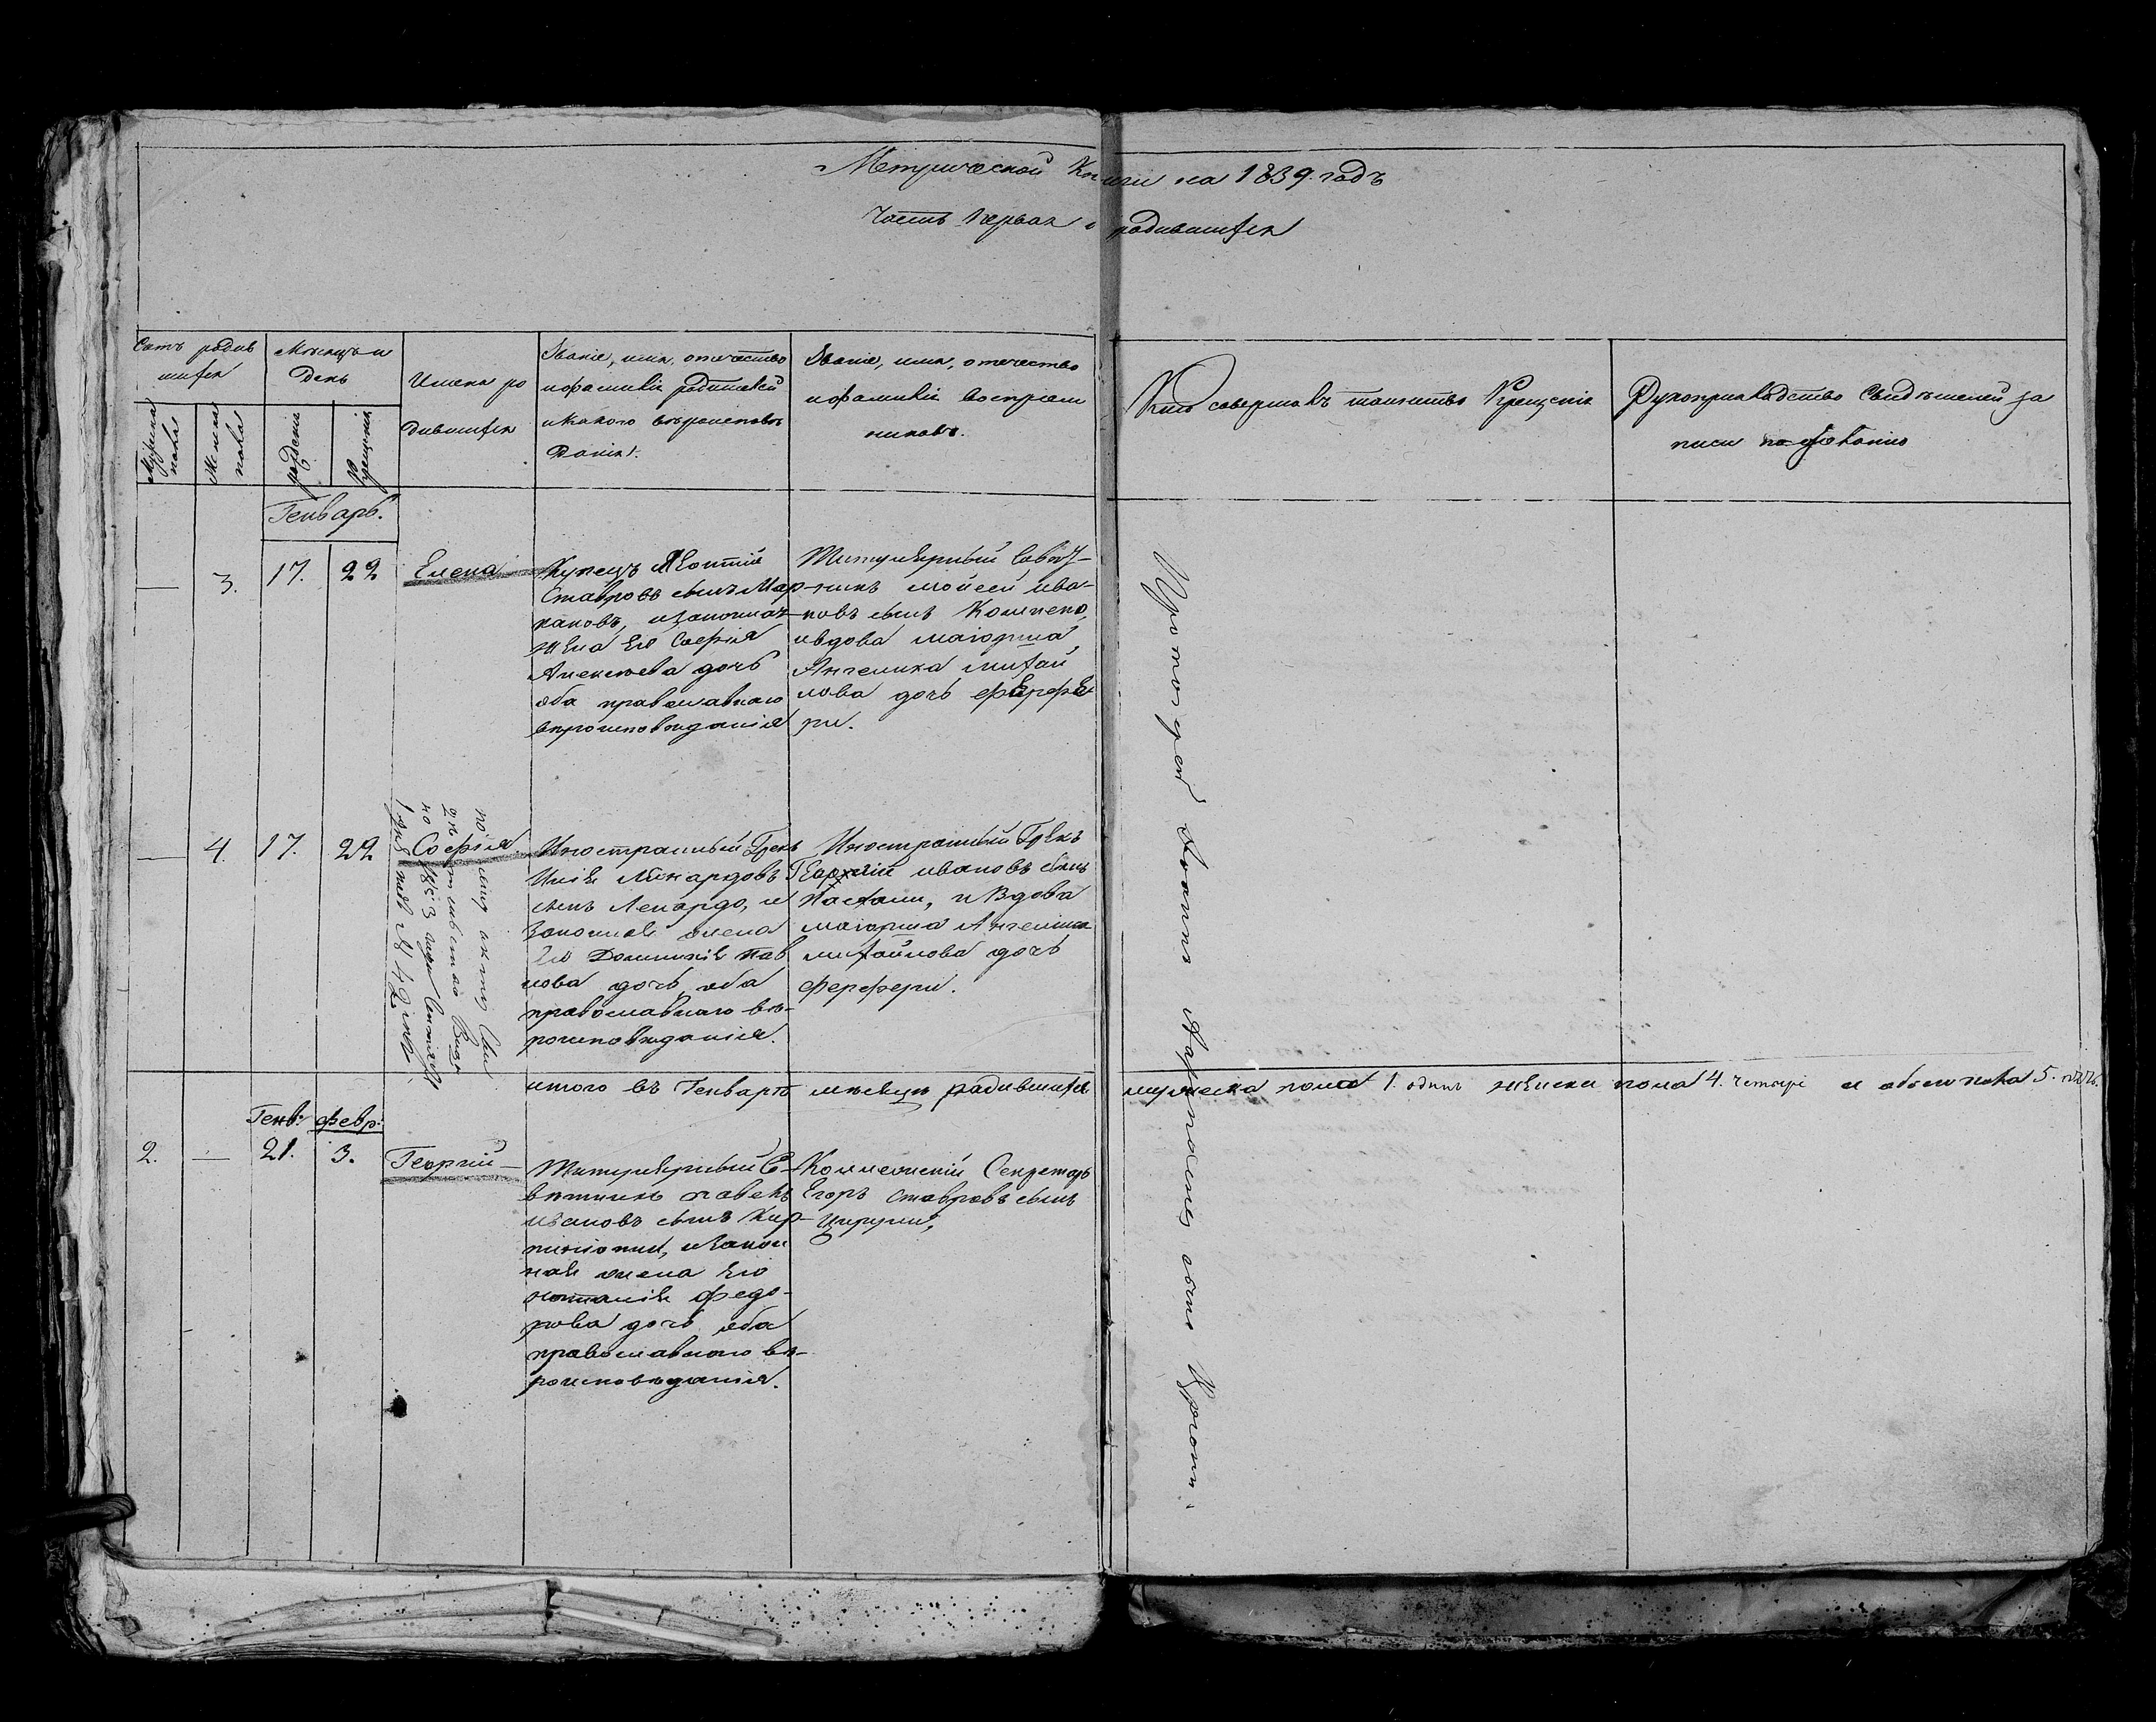 Метрической Книги на 1839. годъ
Часть Первая о родившихся
Счетъ родив
шихся
Мужеска
пола
Женска
пола
Мѣсяцъ и
День
рожденія
Крещенія
Имена ро
дившихся
Званіе, имя, отечество
и фамилія родителей
и какого вѣроисповѣ
Данія.
Званіе, имя, отечество
и фамилія воспрiем
никовъ.
Кто совершалъ таинство Крещенія
Рукоприкладство Свидѣтелей за
писи по желанію
Генварь.
— 3. 17. 22 Елена
Купецъ
Ставровъ сынъ Мар
каковъ, и законная
жена Его Софія
Алексѣева дочь
оба православнаго
вѣроисповѣданія
Титулярный Совѣт-
никъ Мойсей Ива-
новъ сынъ
и вдова маіорша
Ангелика Михай
лова дочь Ферфе
ри.
— 4. 17. 22 Софія.
Иностранный Грекъ
Илія Лѣнардовъ
сынъ Ленардо, и
Законная жена
Его Доминикія Пав
лова дочь, оба
православнаго вѣ-
роисповѣданія.
Иностранный Грекъ
Георгій Ивановъ сынъ
Пасхали, и Вдова
маіорша Ангелика
Михайлова дочь
Ферфери.
итого въ Генварѣ мѣсяцѣ родившихся мужеска пола 1. одинъ женска пола 4. четыре и обоего пола 5. пять.
Генв: февр:
2. — 21. 3. Георгій
Титулярный Со-
вѣтникъ Павелъ
Ивановъ сынъ Кар-
и закон
ная жена Его
Наталія Федо-
рова дочь оба
православнаго вѣ-
роисповѣданія.
Коллежскій Секретарь
Егоръ Ставровъ сынъ
Цирули,
Протоіерей Іоаннъ